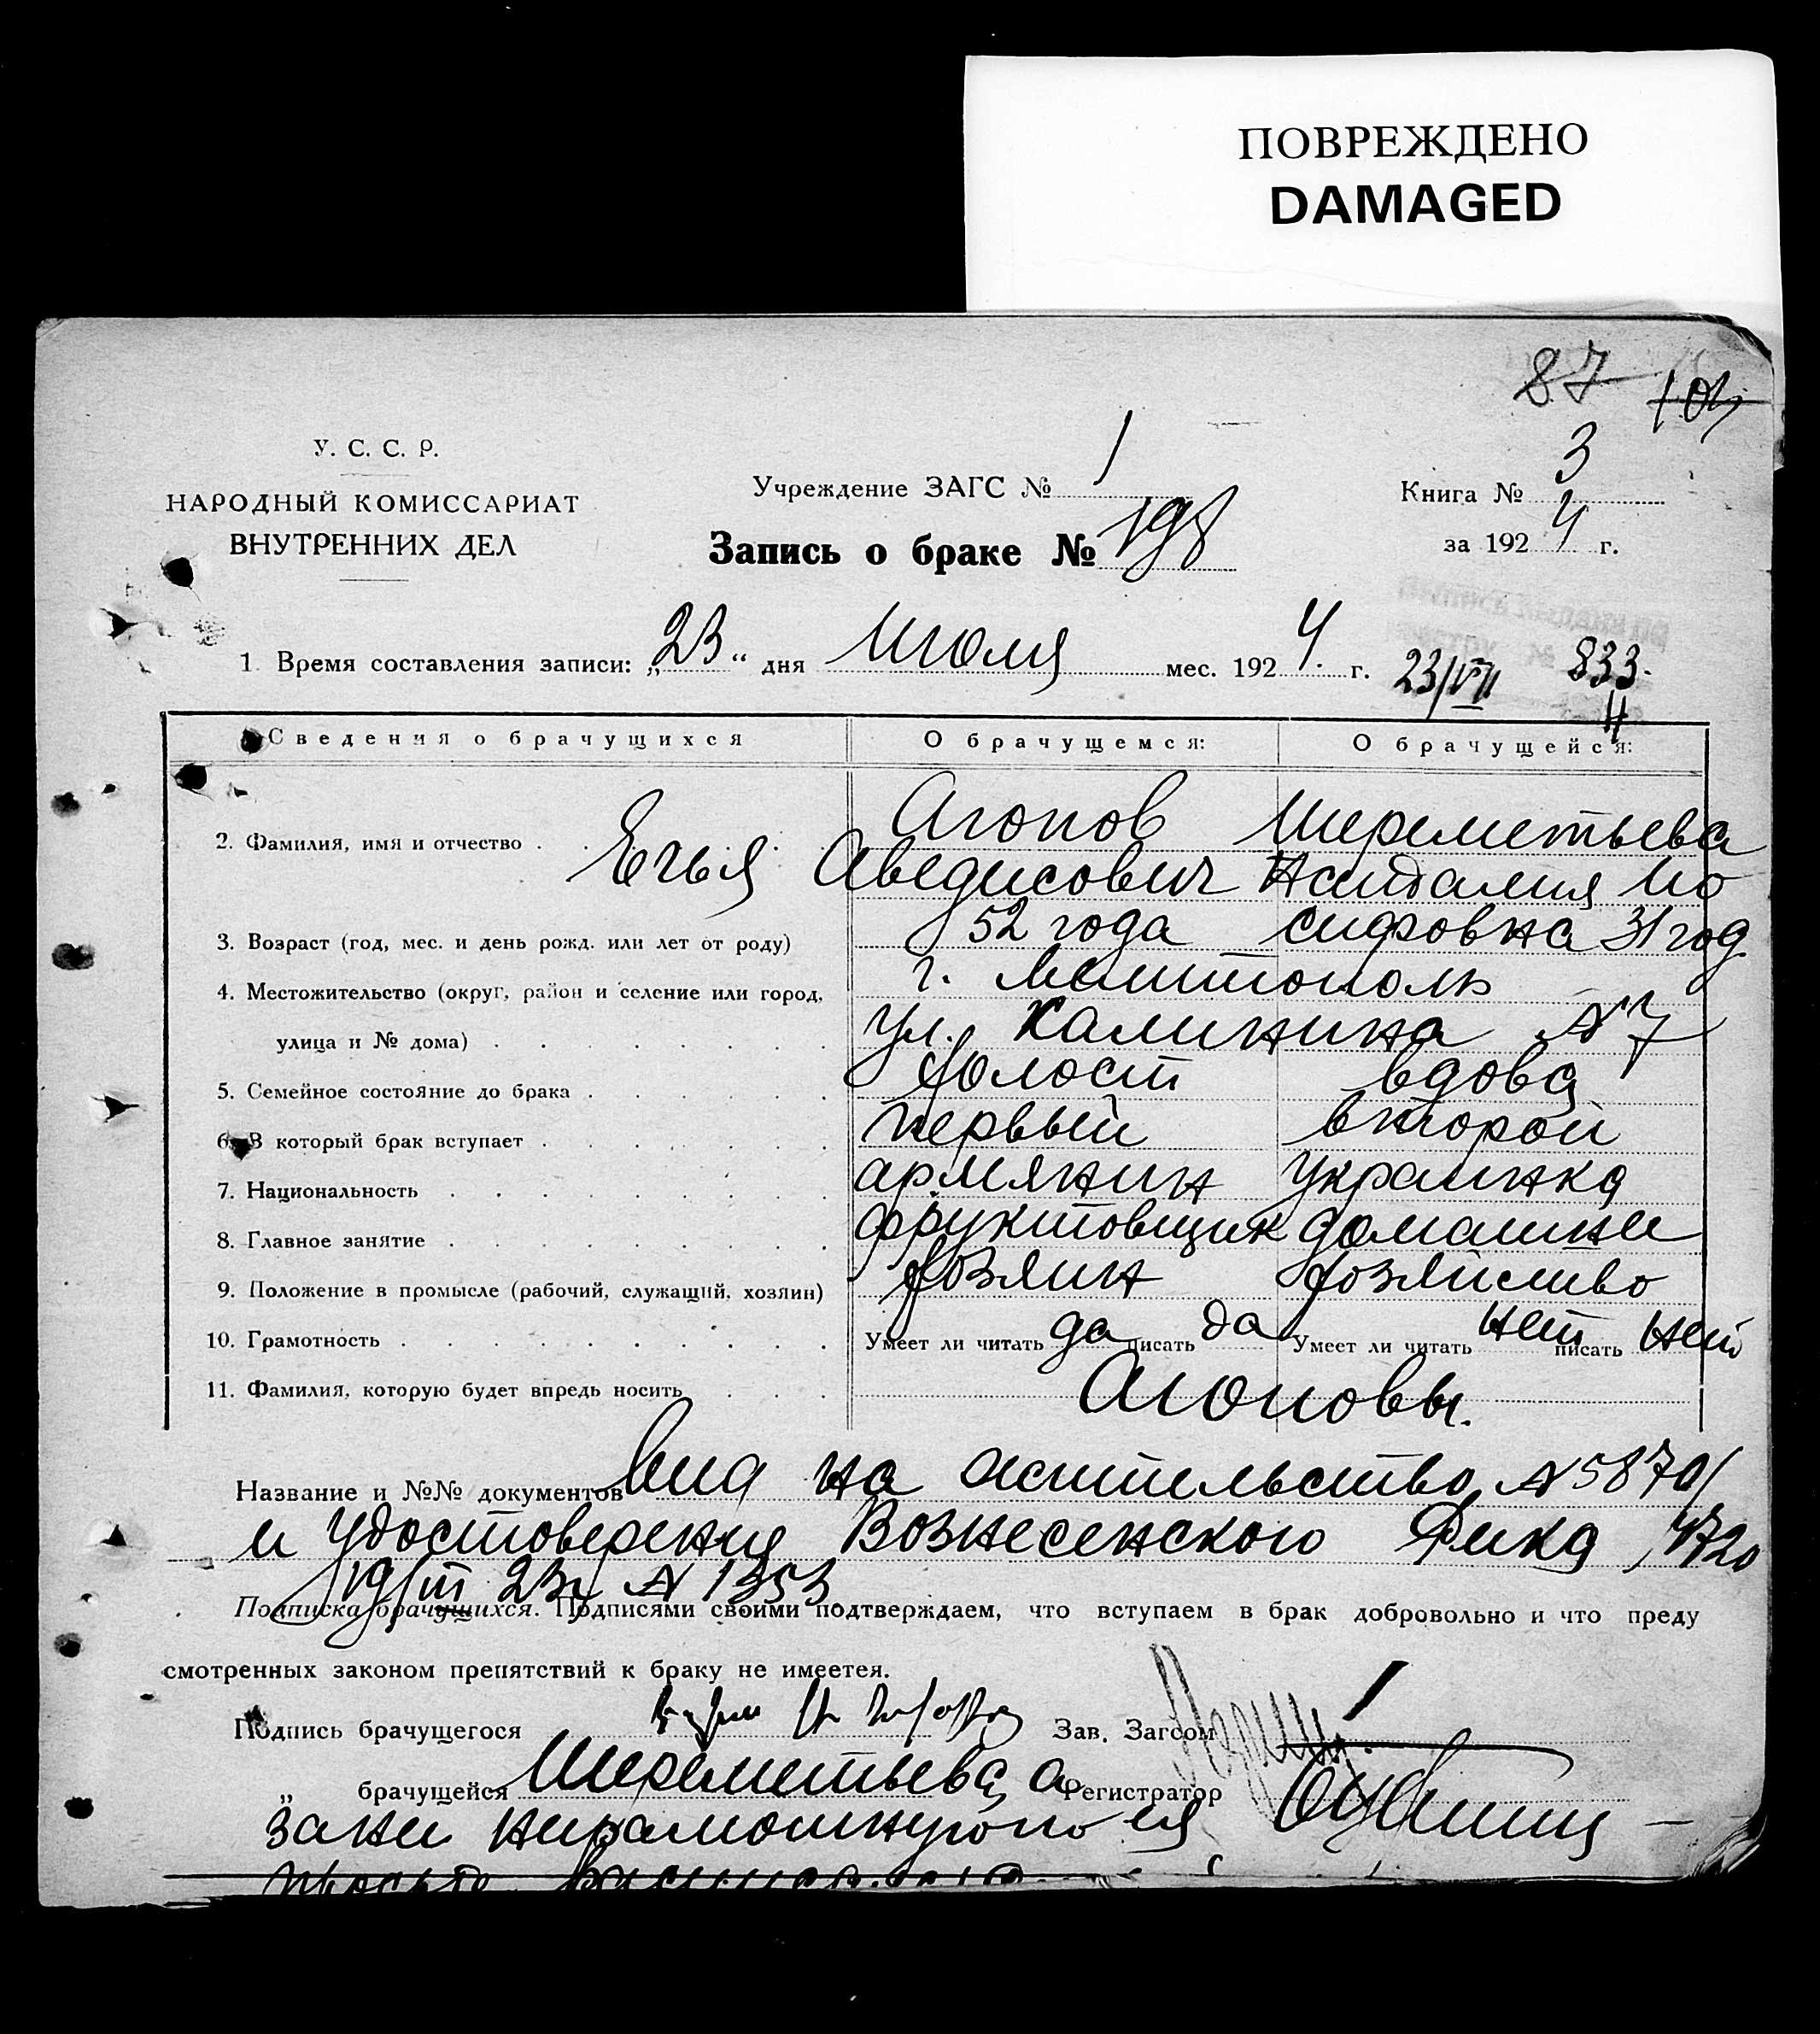 ПОВРЕЖДЕНО
DAMAGED
87 104
У. С. С. Р.
НАРОДНЫЙ КОМИССАРИАТ
ВНУТРЕННИХ ДЕЛ
Учреждение ЗАГС № 1
Запись о браке № 198
Книга № 3
за 1924 г.
1. Время составления записи: „23“ дня Июля мес. 1924 г. 23/VII 833.
Сведения о брачущихся О брачущемся: О брачущейся:
2. Фамилия, имя и отчество . Агопов Шереметьева
Егья Аведисович Наталия Ио
3. Возраст (год, мес. и день рожд. или лет от роду) 52 года сифовна 31 год
4. Местожительство (округ, район и селение или город, г. Мелитополь
улица и № дома) ул. Калинина № 7
5. Семейное состояние до брака холост вдова
6. В который брак вступает первый второй
7. Национальность армянин украинка
8. Главное занятие фруктовщик домашнее
9. Положение в промысле (рабочий, служащий, хозяин) хозяин хозяйство
10. Грамотность Умеет ли читать да писать да Умеет ли читать нет писать нет
11. Фамилия, которую будет впредь носить Агоповы.
Название и №№ документов Вид на жительство № 5870/
и удостоверения Вознесенского 4720
19/III 23г № 1353
Подписка брачущихся. Подписями своими подтверждаем, что вступаем в брак добровольно и что преду
смотренных законом препятствий к браку не имеется.
Подпись брачущегося Зав. Загсом
„ брачущейся Шереметьева, а Регистратор
за нея неграмотную по ея
просьбе